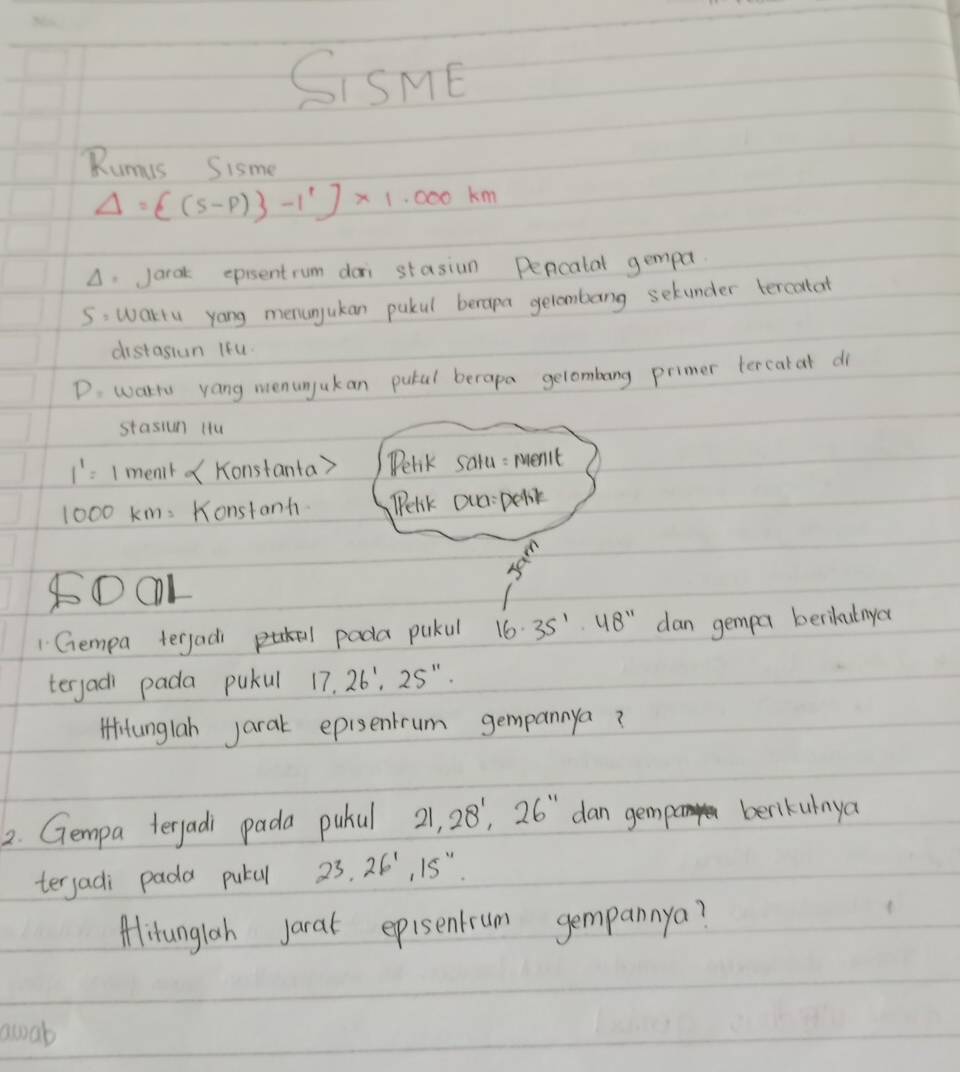 SISME
Rumus Sisme
Δ = {(S-P)} -1'] × 1.000 km
Δ = Jarak episentrum dari stasiun Pencatat gempa.
S = Waktu yang menunjukan pukul berapa gelombang sekunder tercatat
distasiun itu.
P = waktu yang menunjukan pukul berapa gelombang primer tercatat di
stasiun itu
1' = 1 menit <Konstanta>
Petik satu = menit
1000 km = Konstanti.
Petik Dua = petik
Jam
SOAL
1. Gempa terjadi pada pukul 16.35'.48" dan gempa berikutnya
terjadi pada pukul 17.26'.25".
Hitunglah jarak episentrum gempannya?
2. Gempa terjadi pada pukul 21,28', 26" dan gempa berikutnya
terjadi pada pukul 23.26',15".
Hitunglah Jarak episentrum gempannya?
awab